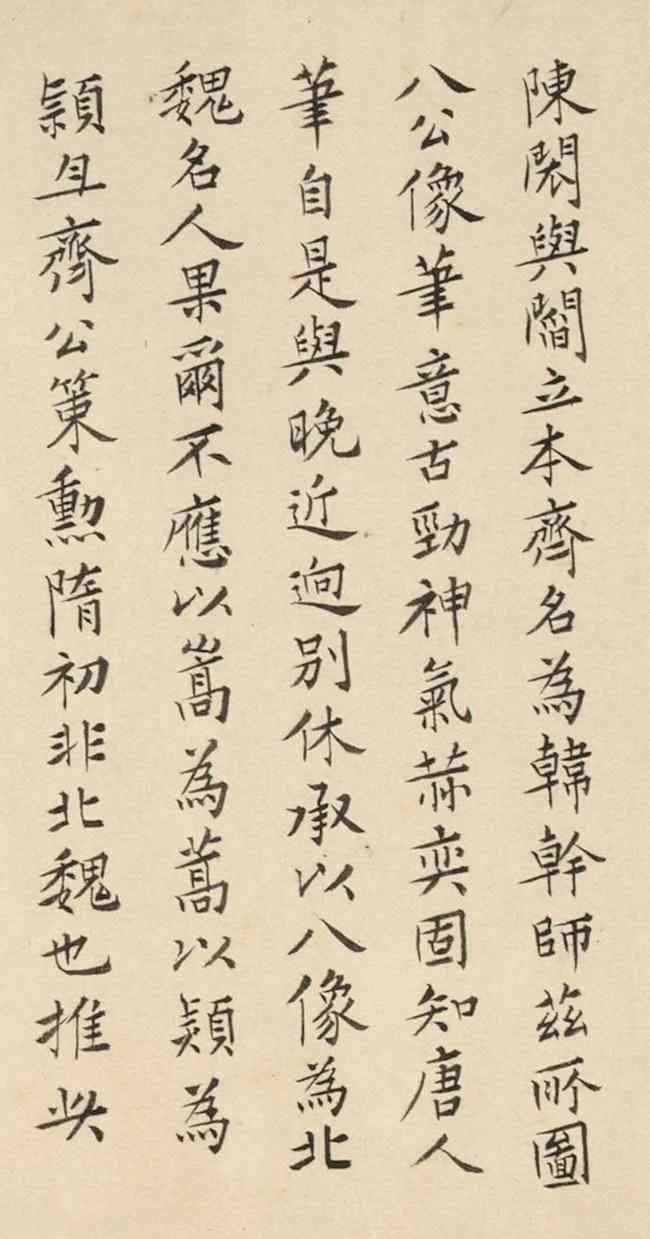 陳閎與閻立本齊名為韓幹師茲所圖
八公像筆意古勁神氣赫奕固知唐人
筆自是與晚近逈別休承以八像為北
魏名人果爾不應以嵩為蒿以熲為
頴且齊公策勲隋初非北魏也推此